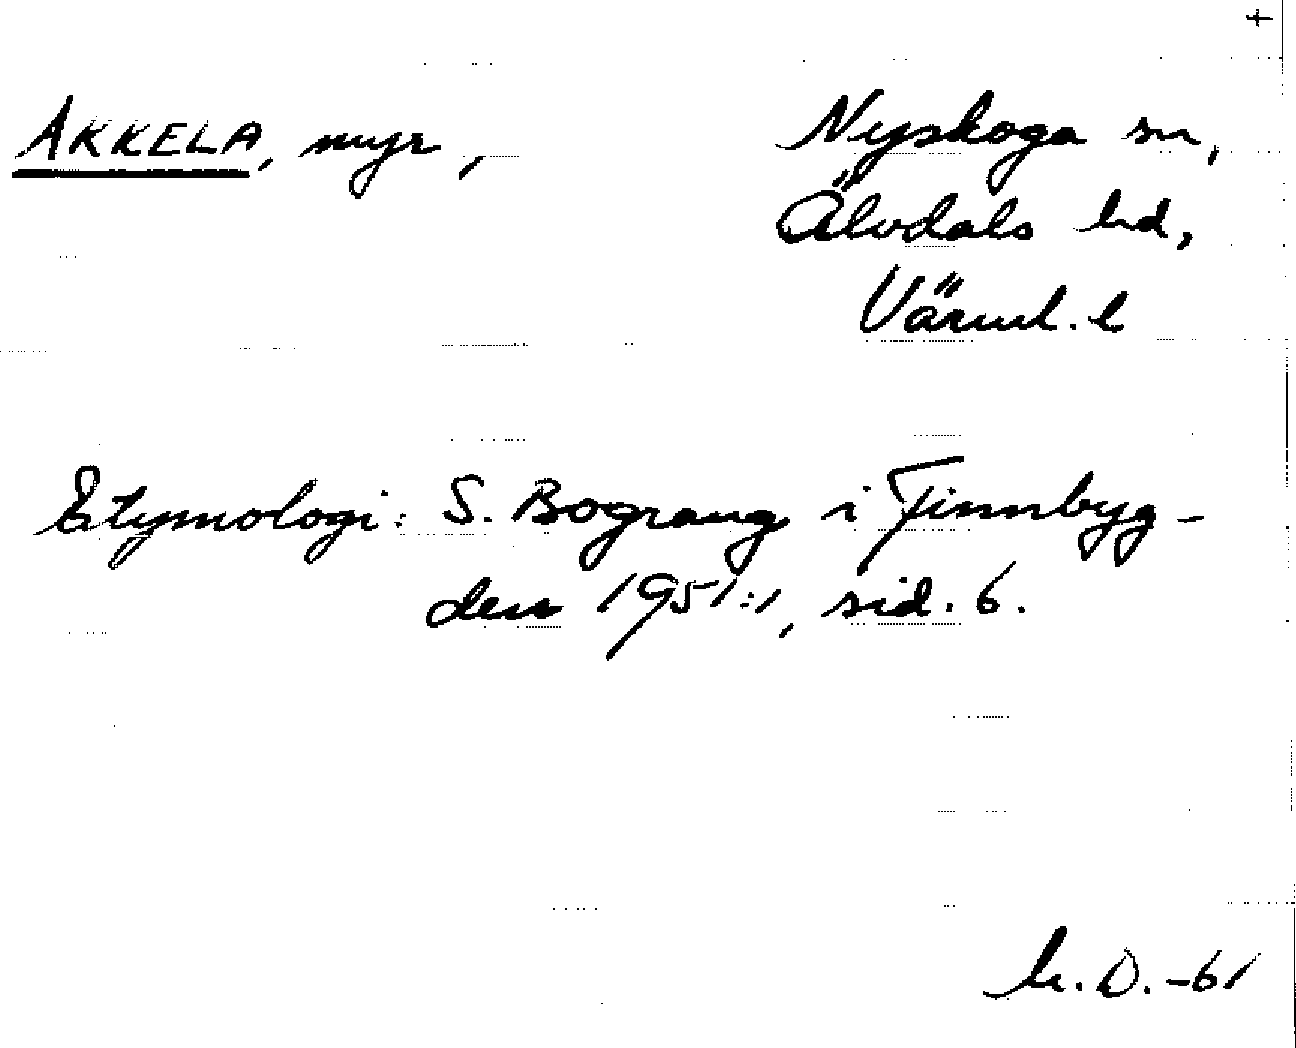 +
AKKELA, myr,
Nyskoga sn,
Älvdals hd,
Värml. l
Etymologi: S. Bograng i Finnbyg-
den 1951:1, sid. 6.
D. -61